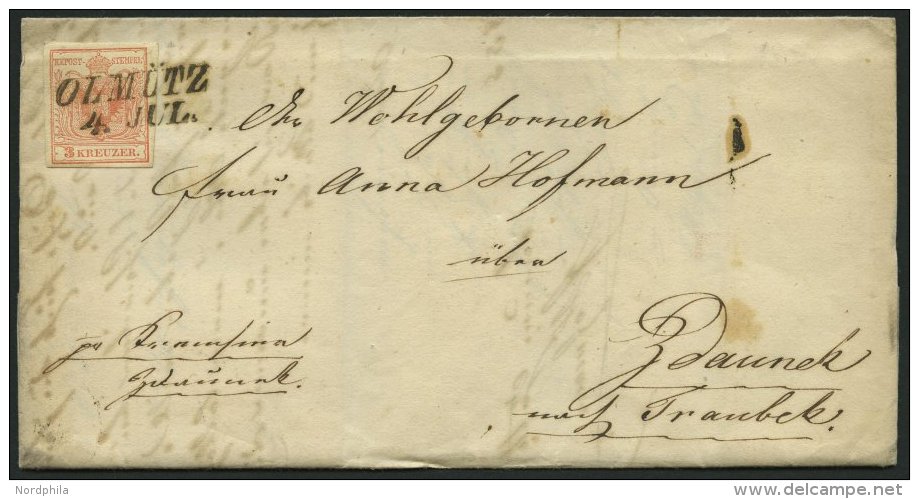 KKPOST-STEMPEL
OLMÜTZ
4. JUL.
3 KREUZER.
Wohlgebornen
Frau Anna Hofmann
über
Zdaunek
nach Traubek.
pr
Zdaunek.
Nordphila
delcampe.net